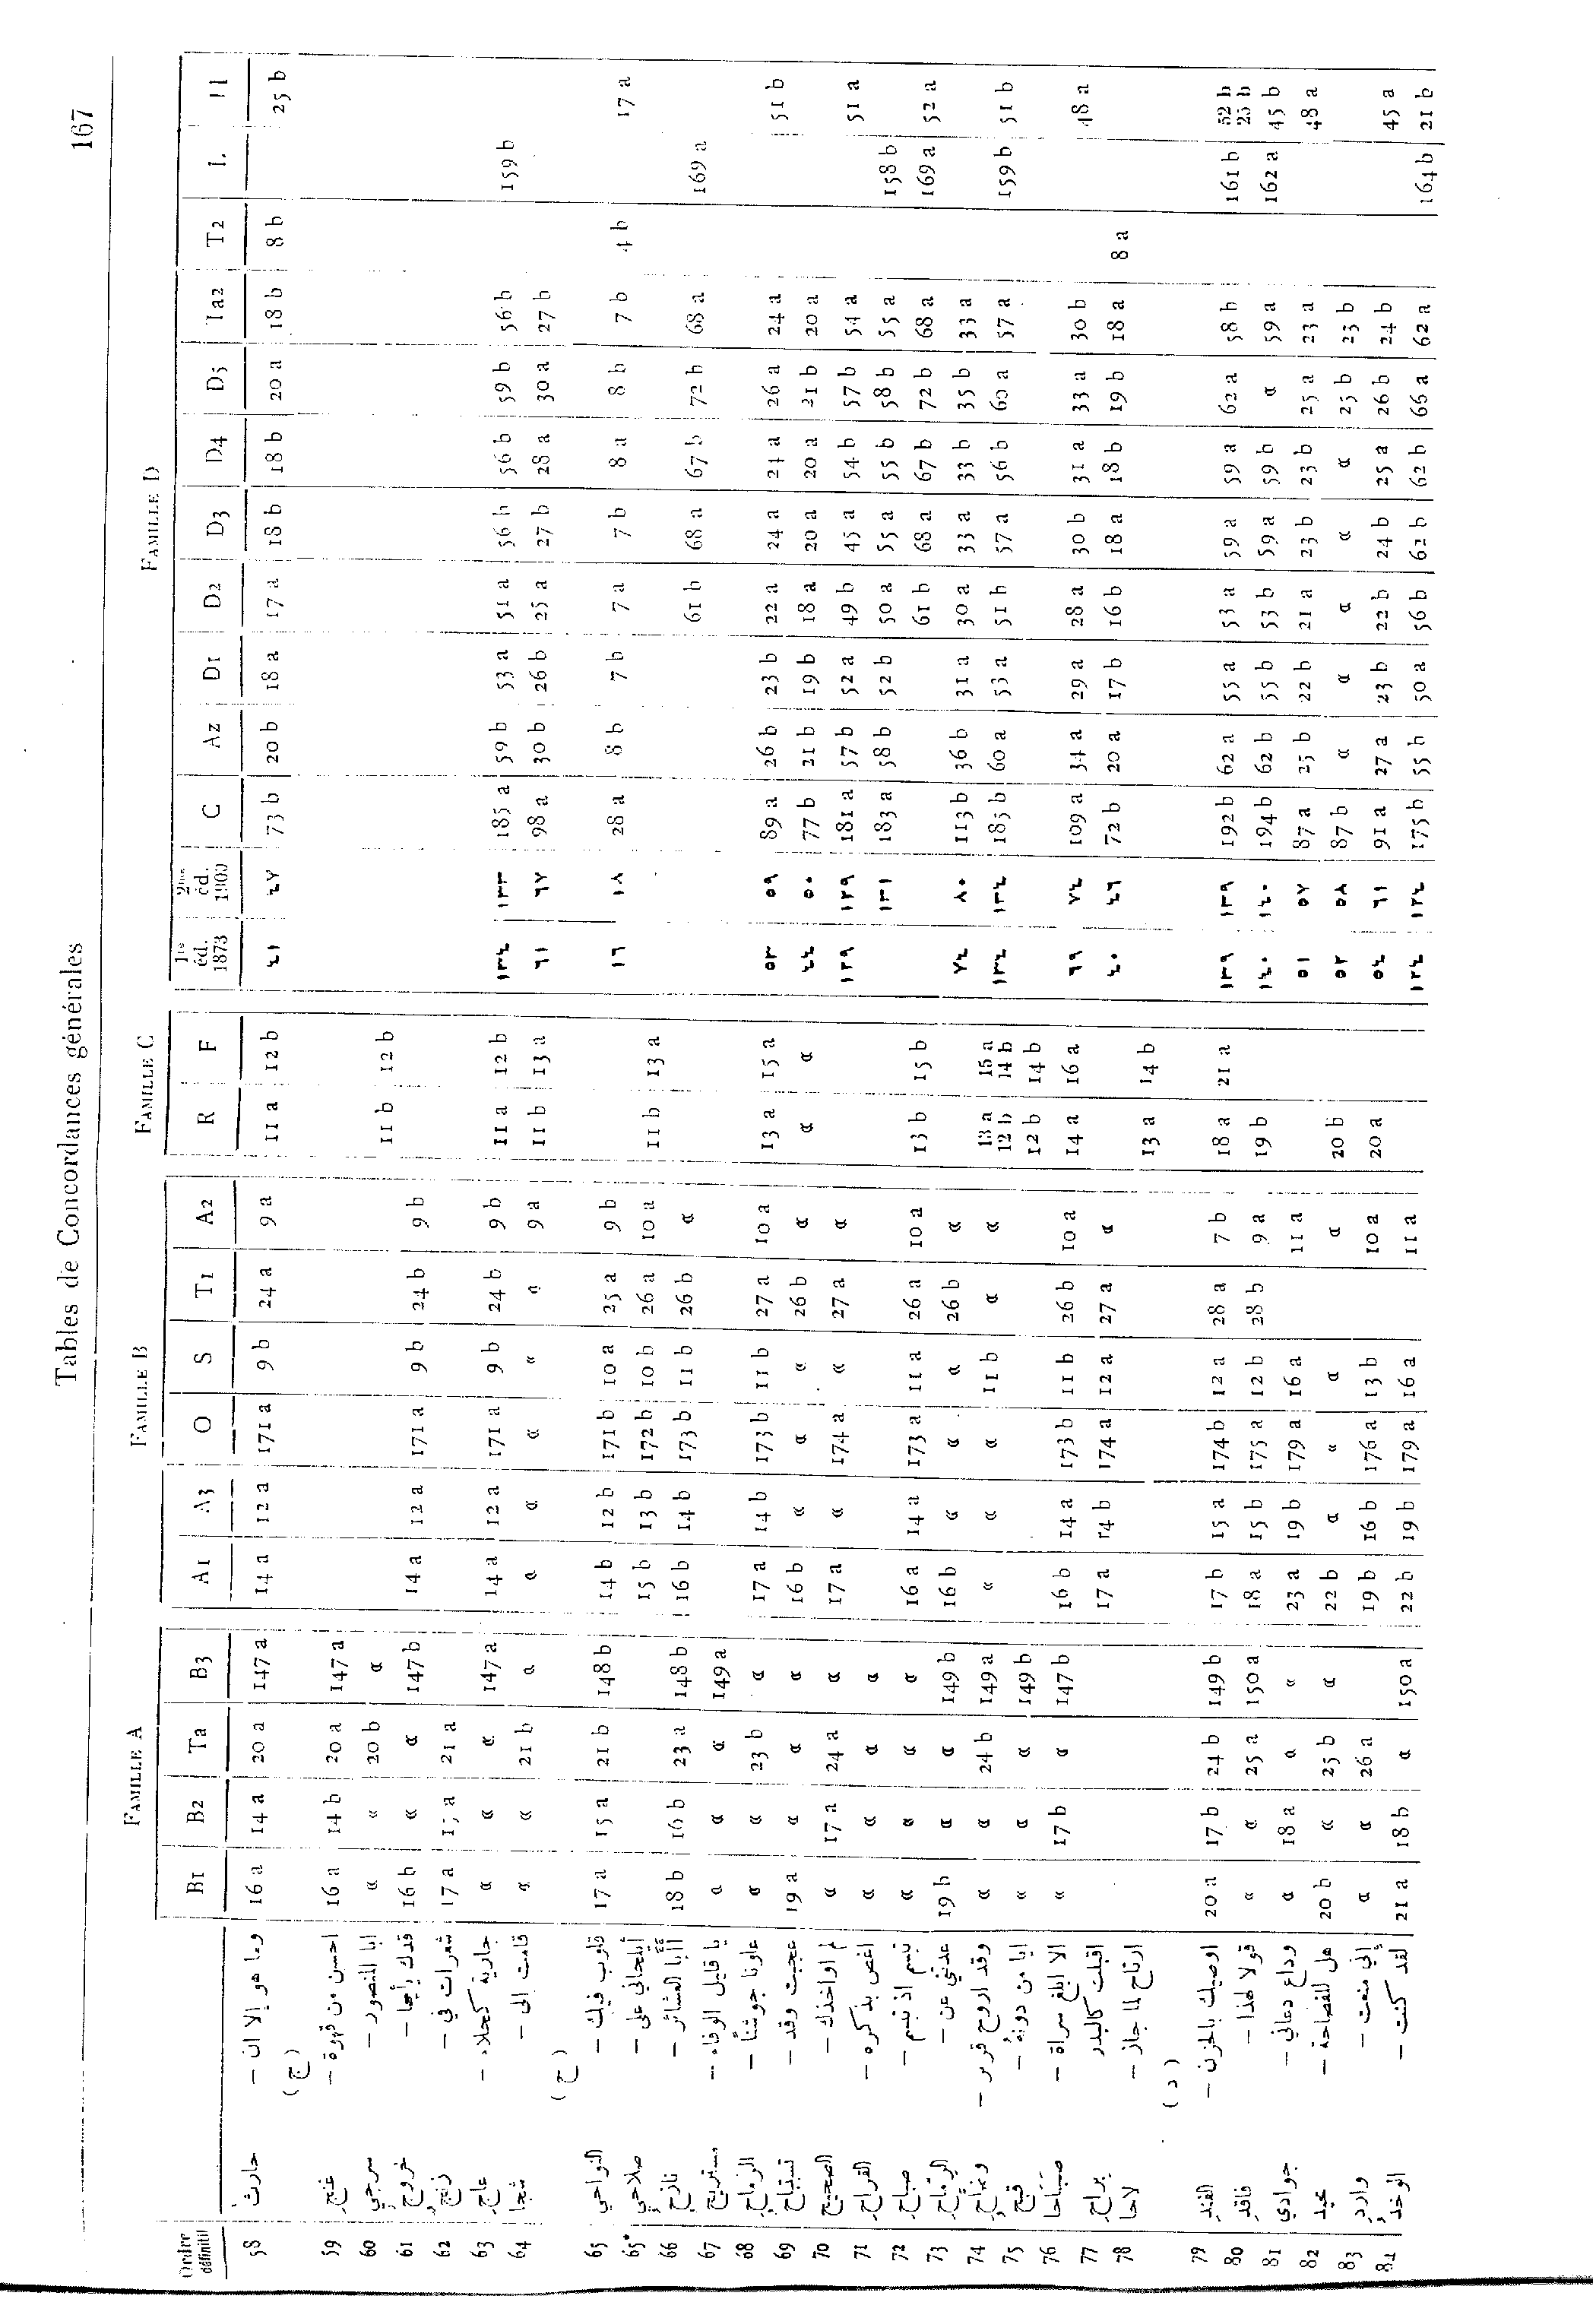 Tables de Concordances générales 167
FAMILLE A FAMILLE B FAMILLE C FAMILLE D
Ordre définitif B1 B2 Ta B3 A1 A3 O S T1 A2 R F 1re éd. 1873 2me éd. 1900 C Az D1 D2 D3 D4 D5 Ia2 T2 L H
58 حارث – وما هو إلا ان 16 a 14 a 20 a 147 a 14 a 12 a 171 a 9 b 24 a 9 a 11 a 12 b ٤١ ٤٧ 73 b 20 b 18 a 17 a 18 b 18 b 20 a 18 b 8 b 25 b
(ج)
59 غنج – احسن من قهوة 16 a 14 b 20 a 147 a
60 سرجي – ابا المنصور « « 20 b « 11 b 12 b
61 خروج – فدك بأيها 16 b « « 147 b 14 a 12 a 171 a 9 b 24 b 9 b
62 زنج – شعرات في 17 a 15 a 21 a
63 عاج – جارية كحلاء « « « 147 a 14 a 12 a 171 a 9 b 24 b 9 b 11 a 12 b ١٣٤ ١٣٣ 185 a 59 b 53 a 51 a 56 b 56 b 59 b 56 b 159 b
64 شجا – قامت الى « « 21 b « « « « « « 9 a 11 b 13 a ٦١ ٦٧ 98 a 30 b 26 b 25 a 27 b 28 a 30 a 27 b
(ح)
65 النواحي – قلوب فيك 17 a 15 a 21 b 148 b 14 b 12 b 171 b 10 a 25 a 9 b ١٦ ١٨ 28 a 8 b 7 b 7 a 7 b 8 a 8 b 7 b 4 b 17 a
65* صلاحي – أيلحاني على 15 b 13 b 172 b 10 b 26 a 10 a 11 b 13 a
66 نازح – أأبا العشائر 18 b 16 b 23 a 148 b 16 b 14 b 173 b 11 b 26 b « 61 b 68 a 67 b 72 b 68 a 169 a
67 مستريح – يا قليل الوفاء « « « 149 a
68 الرماح – علونا جوشنًا « « 23 b « 17 a 14 b 173 b 11 b 27 a 10 a 13 a 15 a ٥٣ ٥٩ 89 a 26 b 23 b 22 a 24 a 24 a 26 a 24 a 51 b
69 تستباح – عجبت وقد 19 a « « « 16 b « « « 26 b « « « ٤٤ ٥٠ 77 b 21 b 19 b 18 a 20 a 20 a 21 b 20 a
70 الصحيح – لم اواخذك « 17 a 24 a « 17 a « 174 a « 27 a « ١٢٩ ١٢٩ 181 a 57 b 52 a 49 b 45 a 54 b 57 b 54 a 51 a
71 القراح – اغص بذكره « « « « ١٣١ 183 a 58 b 52 b 50 a 55 a 55 b 58 b 55 a 158 b
72 صباح – تبسم اذ تبسم « « « « 16 a 14 a 173 a 11 a 26 a 10 a 13 b 15 b 61 b 68 a 67 b 72 b 68 a 169 a 52 a
73 الرماح – عدتني عن 19 b « « 149 b 16 b « « « 26 b « ٧٤ ٨٠ 113 b 36 b 31 a 30 a 33 a 33 b 35 b 33 a
74 – وقد اروح قرير « « 24 b 149 a « « « 11 b « « 13 a 12 b 15 a 14 b ١٣٤ ١٣٤ 185 b 60 a 53 a 51 b 57 a 56 b 60 a 57 a 159 b 51 b
75 قبح – ايا من دونه « « « 149 b 12 b 14 b
76 صباحا – الا ابلغ سراة « 17 b « 147 b 16 b 14 a 173 b 11 b 26 b 10 a 14 a 16 a ٦٩ ٧٤ 109 a 34 a 29 a 28 a 30 b 31 a 33 a 30 b 48 a
77 براح اقبلت كالبدر 17 a 14 b 174 a 12 a 27 a « ٤٠ ٤٦ 72 b 20 a 17 b 16 b 18 a 18 b 19 b 18 a 8 a
78 لاحا – ارتاح لما جاز 13 a 14 b
(د)
79 – اوصيك بالحزن 20 a 17 b 24 b 149 b 17 b 15 a 174 b 12 a 28 a 7 b 18 a 21 a ١٣٩ ١٣٩ 192 b 62 a 55 a 53 a 59 a 59 a 62 a 58 b 161 b 52 b 25 b
80 فاقد – قولا لهذا « « 25 a 150 a 18 a 15 b 175 a 12 b 28 b 9 a 19 b ١٤٠ ١٤٠ 194 b 62 b 55 b 53 b 59 a 59 b « 59 a 162 a 45 b
81 جوادي – وداع دعاني « 18 a « « 23 a 19 b 179 a 16 a 11 a ٥١ ٥٧ 87 a 25 b 22 b 21 a 23 b 23 b 25 a 23 a 48 a
82 محيد – هل للفصاحة 20 b « 25 b « 22 b « « « « 20 b ٥٢ ٥٨ 87 b « « « « « 25 b 23 b
83 وارد – إني منعت « « 26 a 19 b 16 b 176 a 13 b 10 a 20 a ٥٤ ٦١ 91 a 27 a 23 b 22 b 24 b 25 a 26 b 24 b 45 a
84 الوخد – لقد كنت 21 a 18 b « 150 a 22 b 19 b 179 a 16 a 11 a ١٢٤ ١٢٤ 175 b 55 b 50 a 56 b 62 b 62 b 66 a 62 a 164 b 21 b